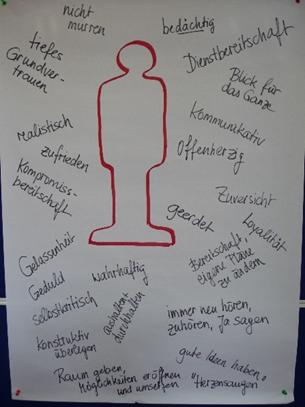 nicht
murren
bedächtig
tiefes
Grundver-
trauen
Dienstbereitschaft
Blick für
das Ganze
Kommunikativ
realistisch
Offenherzig
zufrieden
Kompromiss-
bereitschaft
Zuversicht
geerdet
Loyalität
Gelassenheit
Bereitschaft,
eigene Pläne
zu ändern
Geduld
wahrhaftig
selbstkritisch
aushalten
durchhalten
immer neu hören,
zuhören, Ja sagen
Konstruktiv
überlegen
gute Ideen haben
Raum geben,
Möglichkeiten eröffnen
und umsetzen